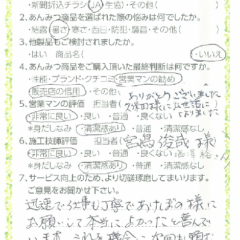 ・新聞折込チラシ・JA・生協・その他(
2.あんみつ商品を選ばれた際の悩みは何でしたか。
・結露・暑さ・寒さ・西日・防犯・騒音・その他(
3.他製品もご検討されましたか。
・はい 商品名( ・いいえ
4.あんみつ商品をご購入頂いた最終判断は何ですか。
・性能・ブランド・クチコミ・営業マンの勧め・
・販売店の信用・その他( ありがとうございました
5.営業マンの評価 担当者(
・非常に良い・良い・普通・良くない
*身だしなみ・清潔感あり・普通・清潔感なし
6.施工技師評価 担当者( 宮島俊哉 様
・非常に良い・良い・普通
*身だしなみ・清潔感あり・普通・清潔感なし
7.サービス向上のため、より切磋琢磨してまいります。
ご意見をお聞かせ下さい。
迅速で仕事も丁寧であたばの様に
お願いして本当によかったと喜んで
います。これを機会に